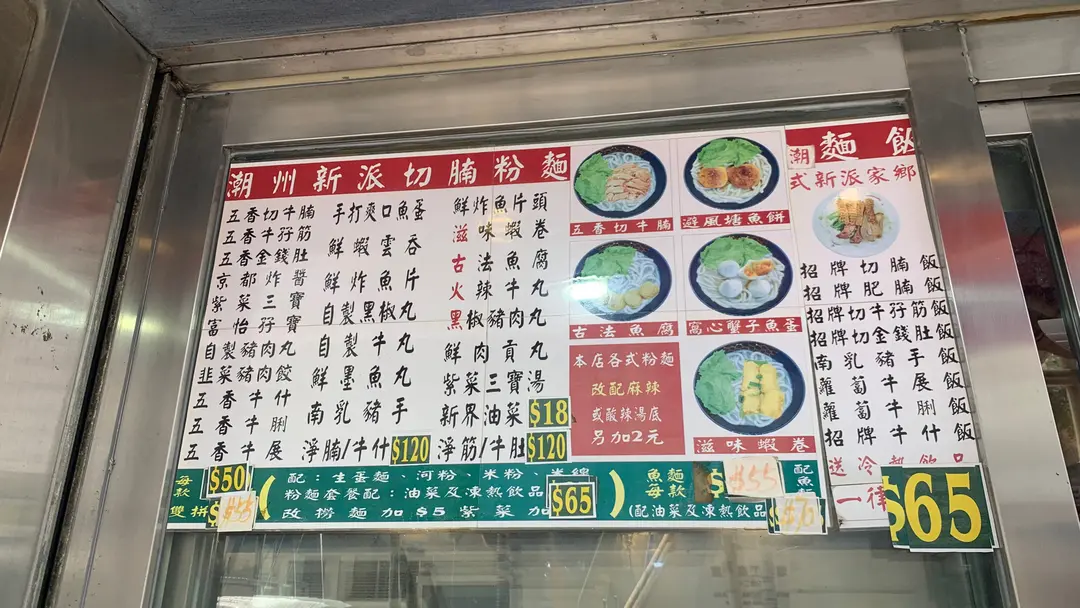 潮州新派切腩粉麵
五香切牛腩
五香牛孖筋
五香金錢肚
京都炸醬
紫菜三寶
富怡孖寶
自製豬肉丸
韭菜豬肉餃
五香牛什
五香牛脷
五香牛展
手打爽口魚蛋
鮮蝦雲吞
鮮炸魚片
自製黑椒丸
自製牛丸
鮮墨魚丸
南乳豬手
淨腩/牛什$120
鮮炸魚片頭
滋味蝦卷
古法魚腐
火辣牛丸
黑椒豬肉丸
鮮肉貢丸
紫菜三寶湯
新界油菜$18
淨筋/牛肚$120
五香切牛腩
避風塘魚餅
古法魚腐
窩心蟹子魚蛋
本店各式粉麵
改配麻辣
或酸辣湯底
另加2元
滋味蝦卷
潮麵飯
式新派家鄉
招牌切腩飯
招牌肥腩飯
招牌切牛孖筋飯
招牌切金錢肚飯
南乳豬手飯
蘿蔔牛展飯
蘿蔔牛脷飯
招牌牛什飯
送冷熱飲品
一律$65
每款$50
雙拼$55
配：生蛋麵、河粉、米粉、米線
粉麵套餐配：油菜及凍熱飲品$65
改撈麵加$5紫菜加
魚麵
每款$55
(配油菜及凍熱飲品